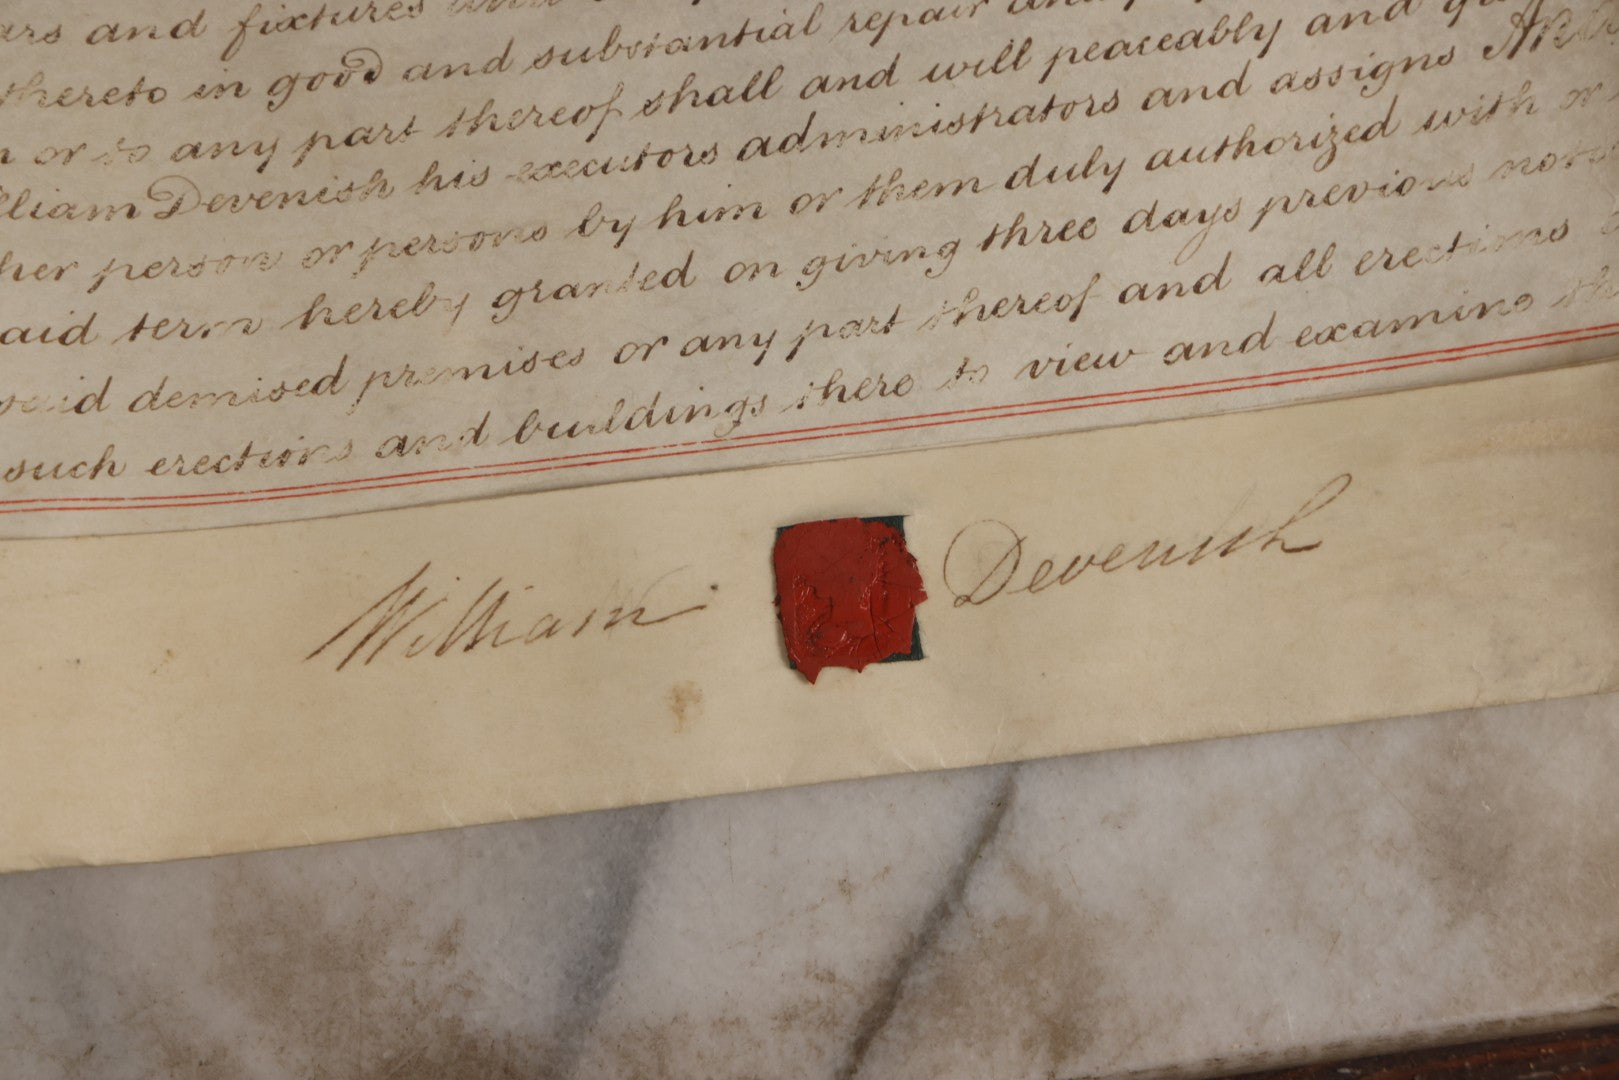 and fixtures
thereto in good and substantial repair
or to any part thereof shall and will peaceably and
lliam Devenish his executors administrators and assigns And
her person or persons by him or them duly authorized with or
aid term hereby granted on giving three days previous
said demised premises or any part thereof and all erections
such erections and buildings there to view and examine
William Devenish